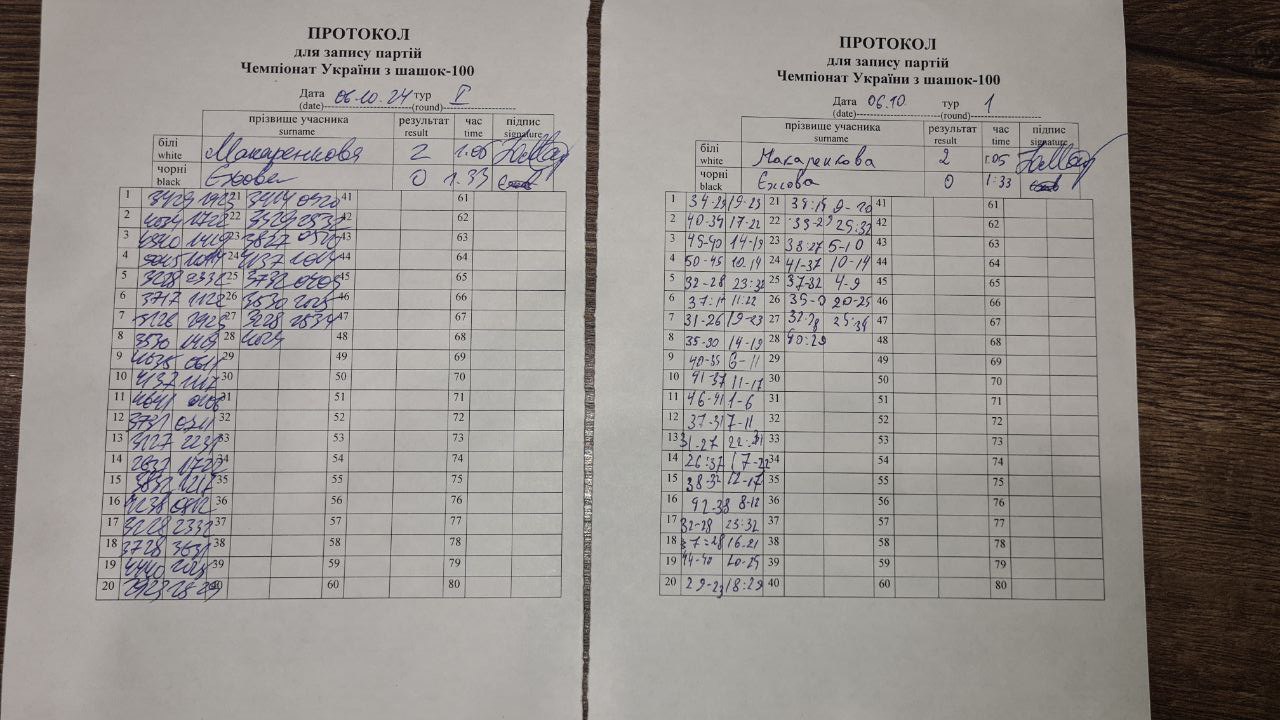 ПРОТОКОЛ
для запису партій
Чемпіонат України з шашок-100
Дата 06.10.24 тур I
(date)-----------------------(round)-------------------
прізвище учасника результат час підпис
surname result time signature
білі Макаренкова 2 1.05
white
чорні Єжова 0 1.33
black
1 3429 1923 21 3414 0920 41 61
2 4034 1722 22 3329 2532 42 62
3 4540 1419 23 3827 0510 43 63
4 5045 1014 24 4137 1014 44 64
5 3228 2332 25 3732 0409 45 65
6 3717 1122 26 3530 2025 46 66
7 3126 1923 27 3228 2534 47 67
8 3530 1419 28 4029 48 68
9 4035 0611 29 49 69
10 4137 1117 30 50 70
11 4641 0106 31 51 71
12 3731 0711 32 52 72
13 3127 2231 33 53 73
14 2637 1722 34 54 74
15 3832 1217 35 55 75
16 4238 0812 36 56 76
17 3228 2332 37 57 77
18 3728 38 58 78
19 4440 2025 39 59 79
20 2923 40 60 80
ПРОТОКОЛ
для запису партій
Чемпіонат України з шашок-100
Дата 06.10. тур 1
(date)-----------------------(round)-------------------
прізвище учасника результат час підпис
surname result time signature
білі Макаренкова 2 1.05
white
чорні Єжова 0 1:33
black
1 34-29 19-23 21 9-20 41 61
2 40-34 17-22 22 33-29 25:32 42 62
3 45-40 14-19 23 38:27 5-10 43 63
4 50-45 10.14 24 41-37 10-14 44 64
5 32-28 23:32 25 37-32 4-9 45 65
6 37:17 11:22 26 20-25 46 66
7 31-26 19-23 27 32-28 25:34 47 67
8 35-30 14-19 28 40:29 48 68
9 40-35 6-11 29 49 69
10 41-37 11-17 30 50 70
11 46-41 1-6 31 51 71
12 37-31 7-11 32 52 72
13 31-27 22:31 33 53 73
14 26:37 17-22 34 54 74
15 38-32 12-17 35 55 75
16 42-38 8-12 36 56 76
17 32-28 23:32 37 57 77
18 37:28 16-21 38 58 78
19 44-40 20-25 39 59 79
20 29-23 18:29 40 60 80